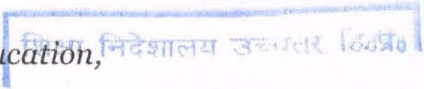 ucation, शिक्षा निदेशालय उच्चतर हि०प्र०